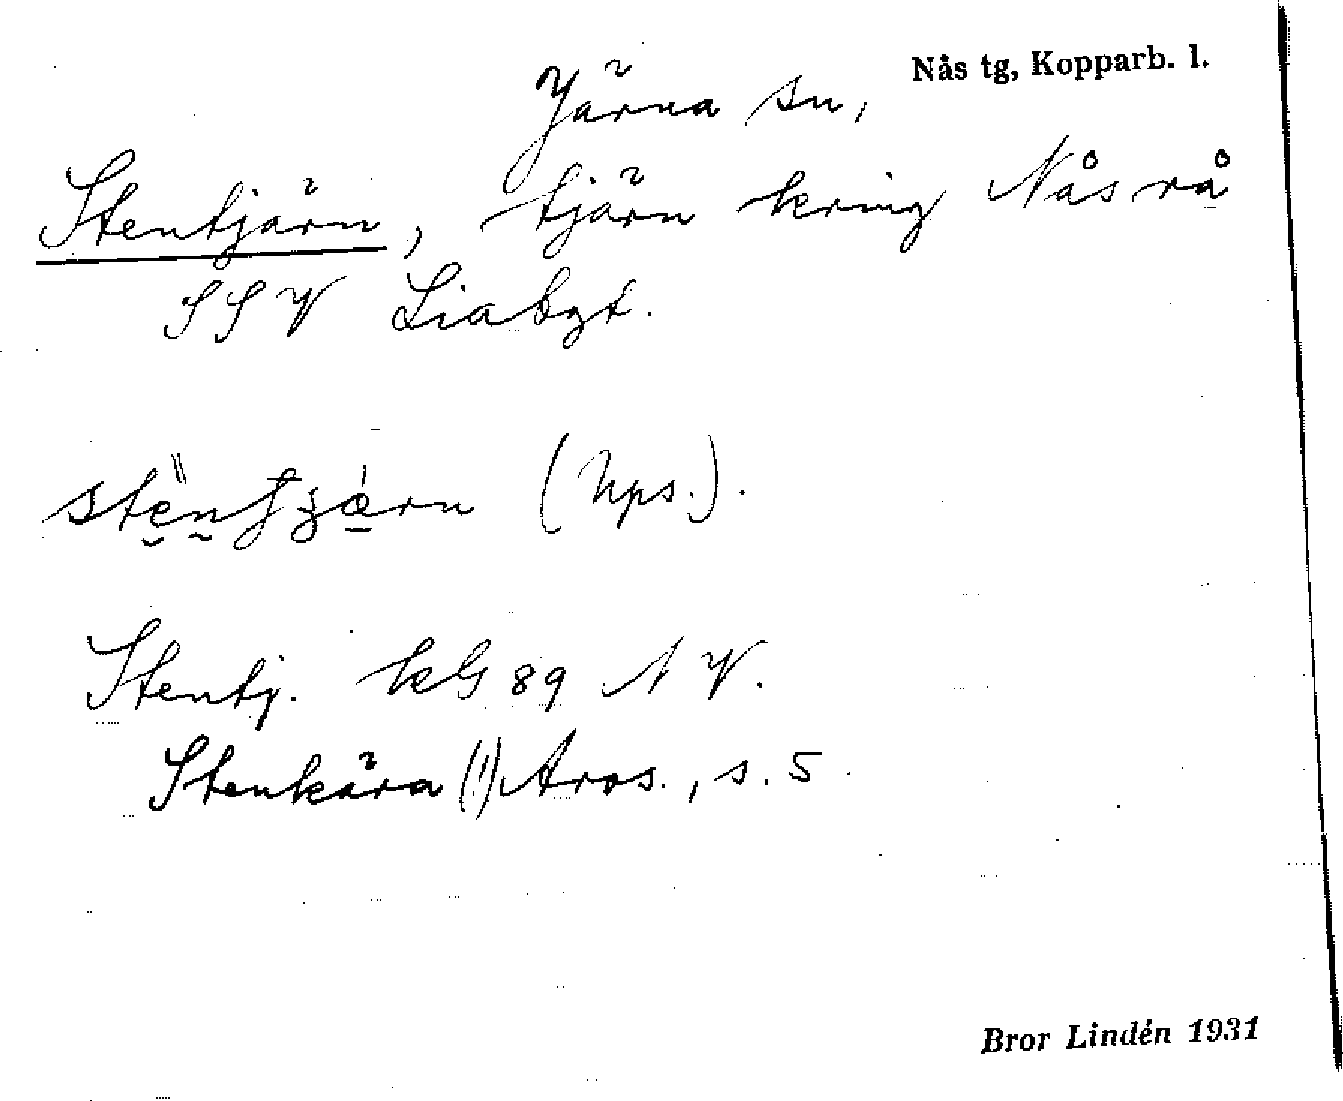 Nås tg, Kopparb. l.
Järna sn,
Stentjärn, tjärn kring Nås rå
SSV Liabgt.
(Nps.).
Stentj. kG 89 NV.
Stenkära (!) Aros., s. 5.
Bror Lindén 1931